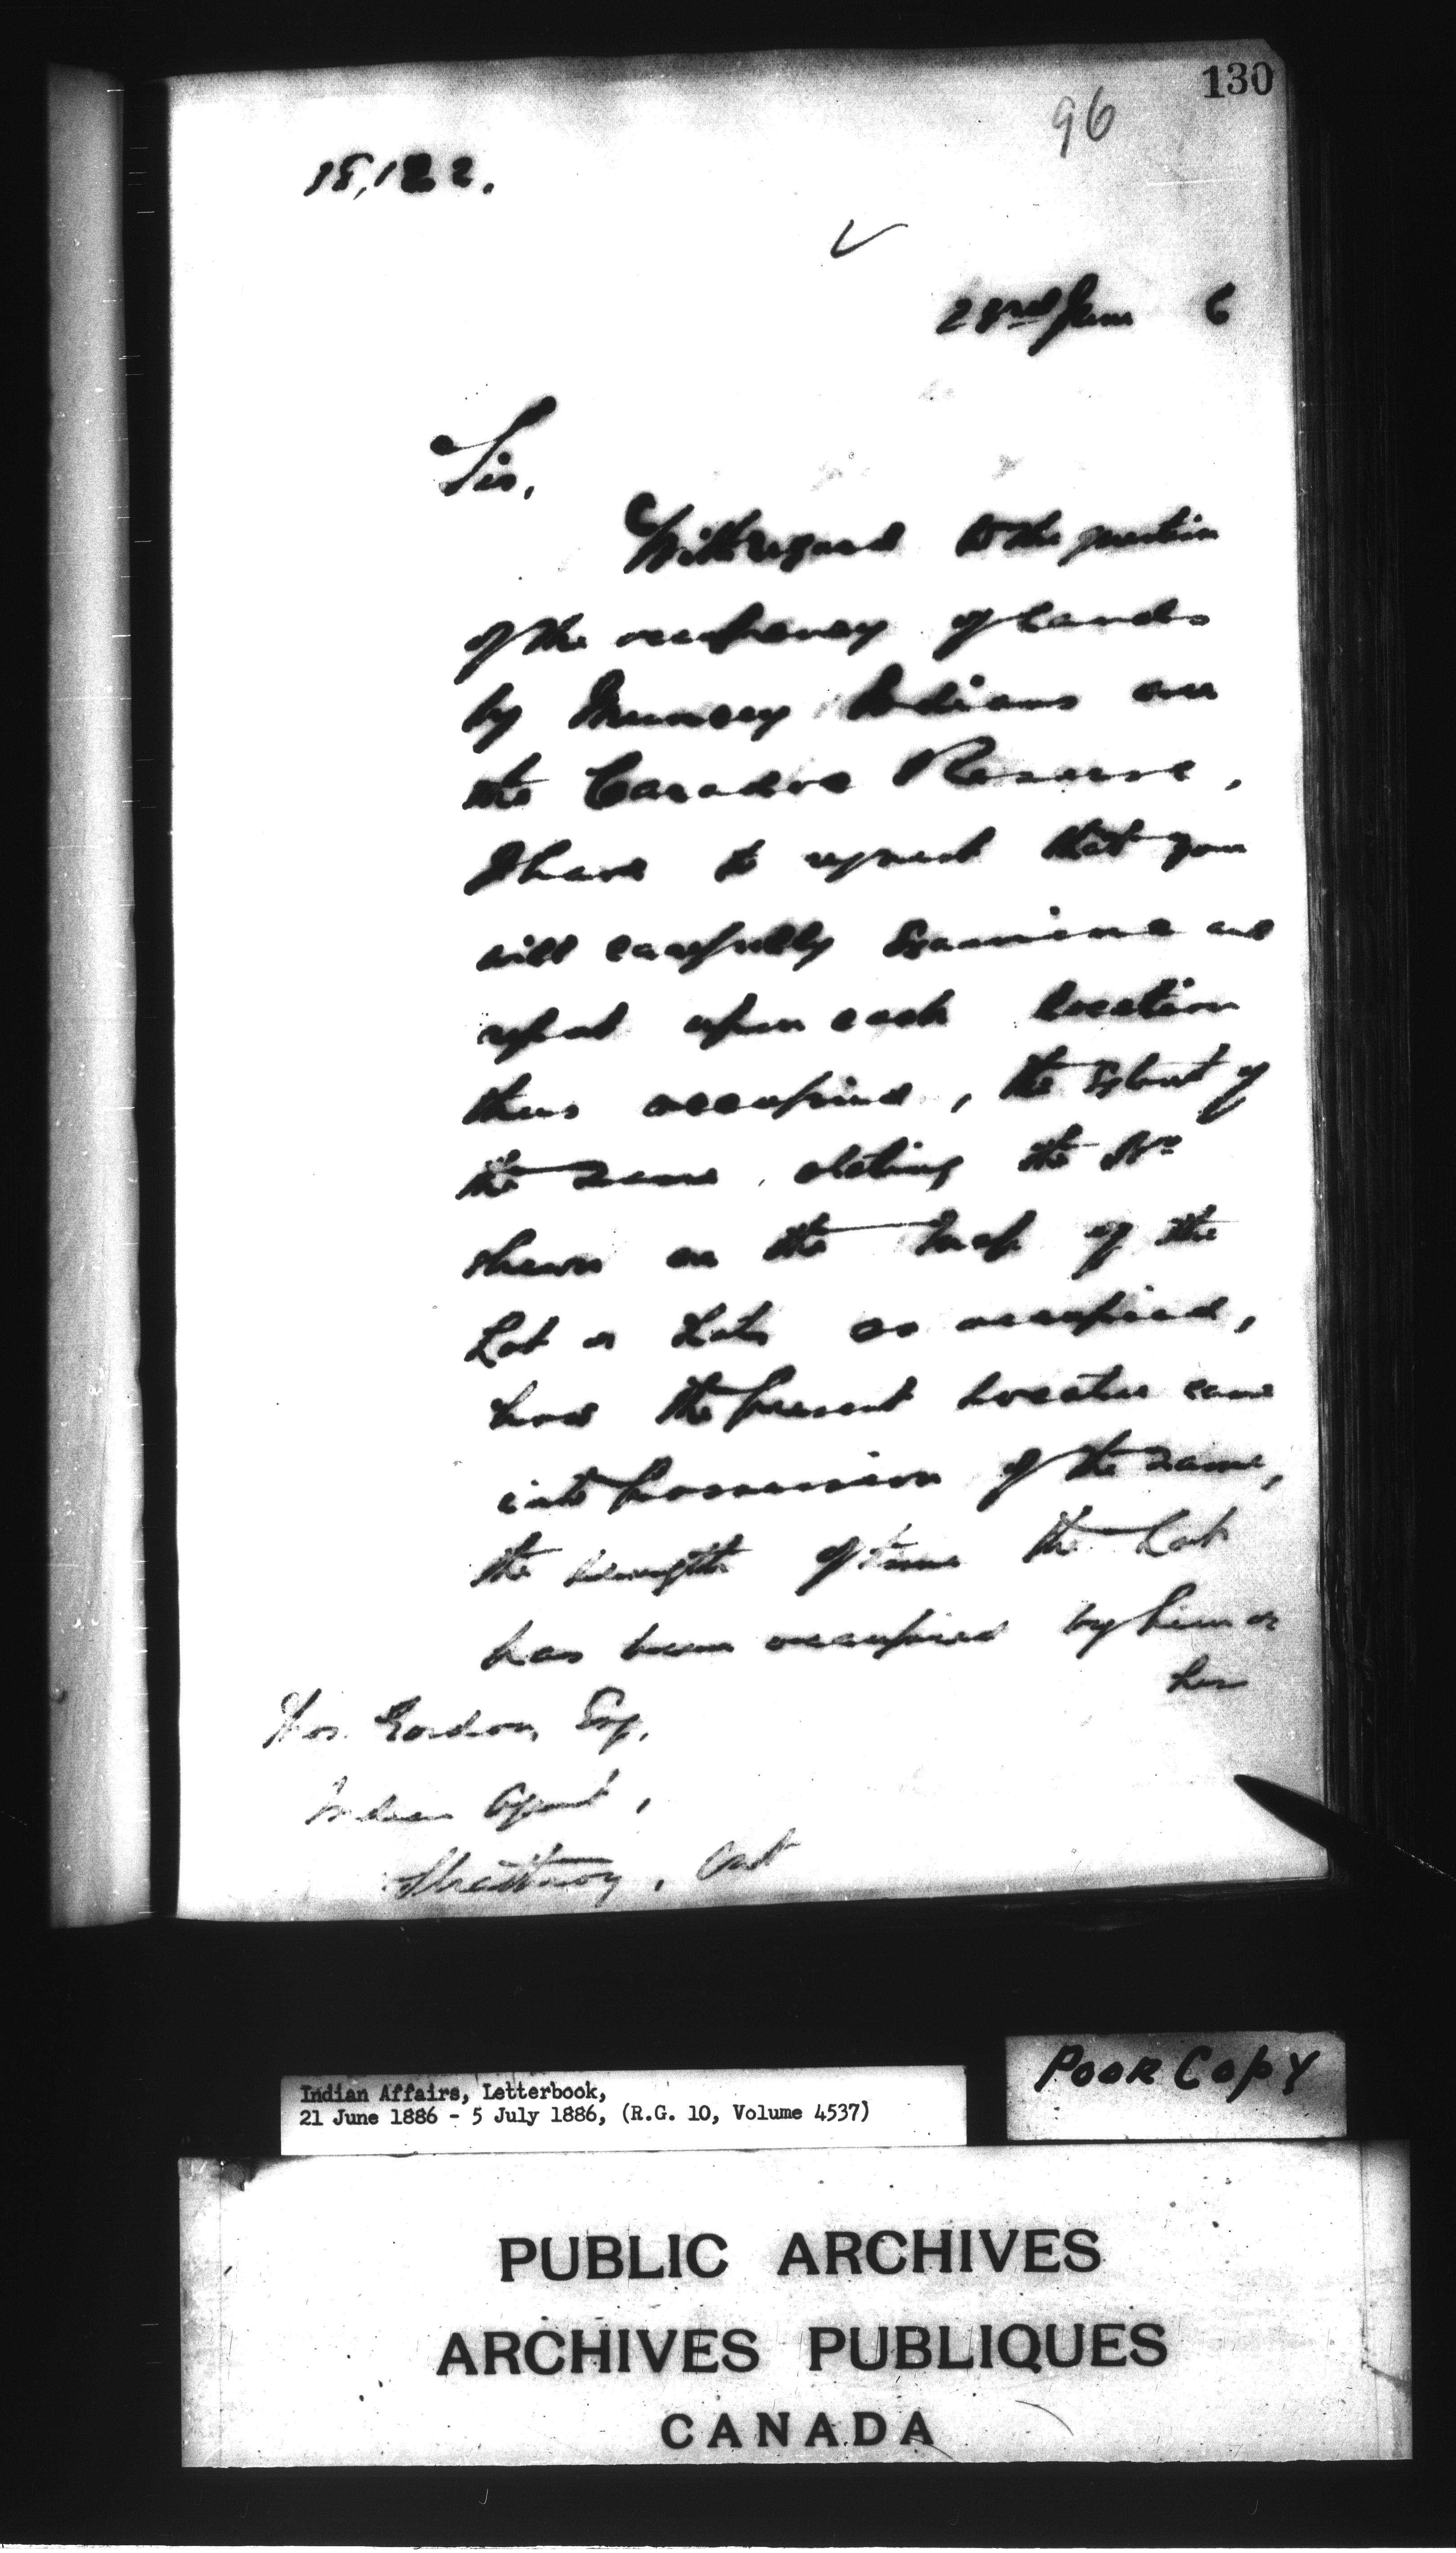 130
96
18,122.
23rd June 6
Sir,
With regard to the question
of the occupancy of lands
by Muncey Indians on
the Caradoc Reserve,
I have to request that you
will carefully Examine and
report upon each location
thus occupied, the Extent of
the same, stating the No
shewn on the Map of the
Lot or Lots so occupied,
how the present locatee came
into possession of the same,
the length of time the Lot
has been occupied by him or
her
Thos. Gordon, Esq,
Indian Agent,
Strathroy, Ont
Poor Copy
Indian Affairs, Letterbook,
21 June 1886 - 5 July 1886, (R.G. 10, Volume 4537)
PUBLIC ARCHIVES
ARCHIVES PUBLIQUES
CANADA